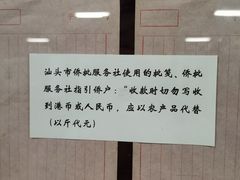 汕头市侨批服务社使用的批笺、侨批
服务社指引侨户：“收款时切勿写收
到港币或人民币，应以农产品代替
（以斤代元）